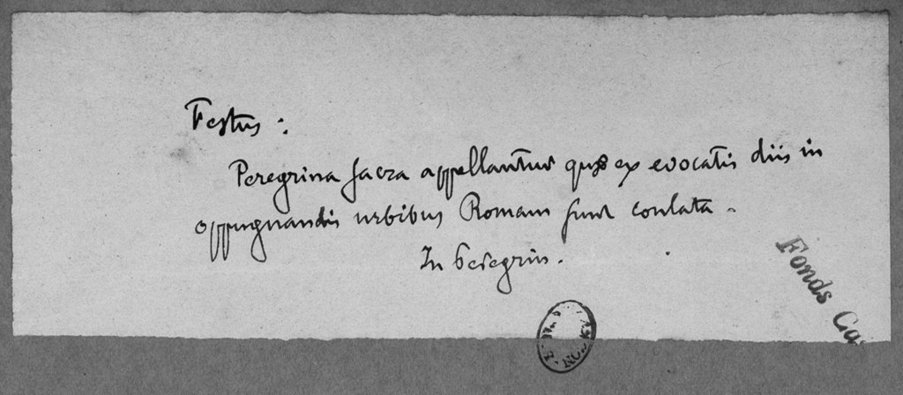 Festus :
Peregrina sacra appellantur quæ ex evocatis diis in
oppugnandis urbibus Romam sunt conlata .
In Peregrin .
Fonds Ca